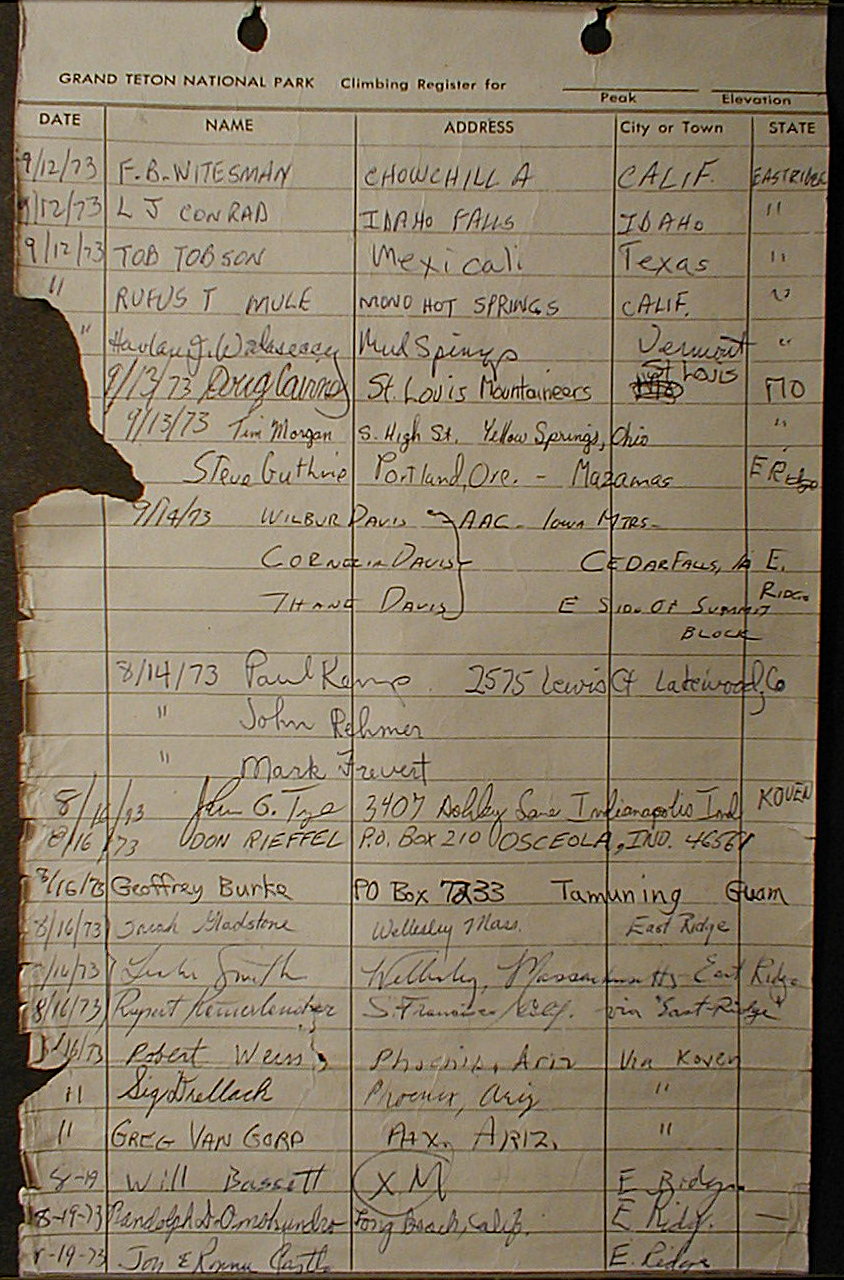 GRAND TETON NATIONAL PARK Climbing Register for
Peak Elevation
DATE NAME ADDRESS City or Town STATE
9/12/73 F.B. WITESMAN CHOWCHILLA CALIF. EASTRIDGE
9/12/73 L J CONRAD IDAHO FALLS IDAHO "
9/12/73 TOB TOBSON Mexicali Texas "
" RUFUS T MULE MONO HOT SPRINGS CALIF. "
" Harlan J. Mud Springs Vermont "
9/13/73 Doug Cairns St. Louis Mountaineers St Louis MO
9/13/73 Tim Morgan S. High St. Yellow Springs, Ohio "
Steve Guthrie Portland, Ore. - Mazamas E R
9/14/73 WILBUR DAVIS AAC - Iowa MTRS-
DAVIS CEDAR FALLS, IA E.
DAVIS E SIDE OF SUMMIT RIDGE
BLOCK
8/14/73 Paul Kemp 2575 Lewis Ct Lakewood, Co
" John Rehmer
" Mark Frevert
8/16/73 John G. 3407 Ashley Lane Indianapolis Ind KOVEN
8/16/73 DON RIEFFEL P.O. BOX 210 OSCEOLA, IND. 46561
8/16/73 Geoffrey Burke PO Box 7233 Tamuning Guam
8/16/73 Gladstone Wellesley Mass. East Ridge
/16/73 Smith Wellesley, Massachusetts East Ridge
8/16/73 Rupert S. Francisco via "East Ridge"
/16/73 Robert Weiss Phoenix, Ariz Via Koven
" Sig Phoenix, Ariz "
" GREG VAN GORP ARIZ. "
8-19 Will Bassett XM E Ridge
8-19-73 Randolph D. Omohundro Long Beach, Calif. E Ridg. —
-19-73 Jon & Ronna Castle E. Ridge